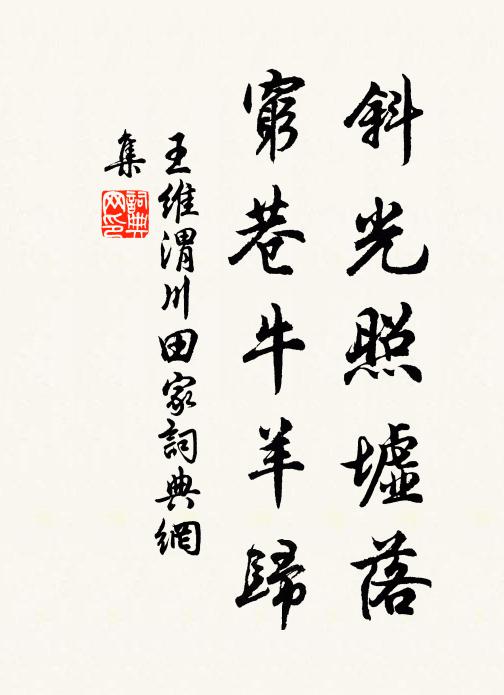 斜光照墟落
窮巷牛羊歸
王維渭川田家詞典網
集
詞典网印